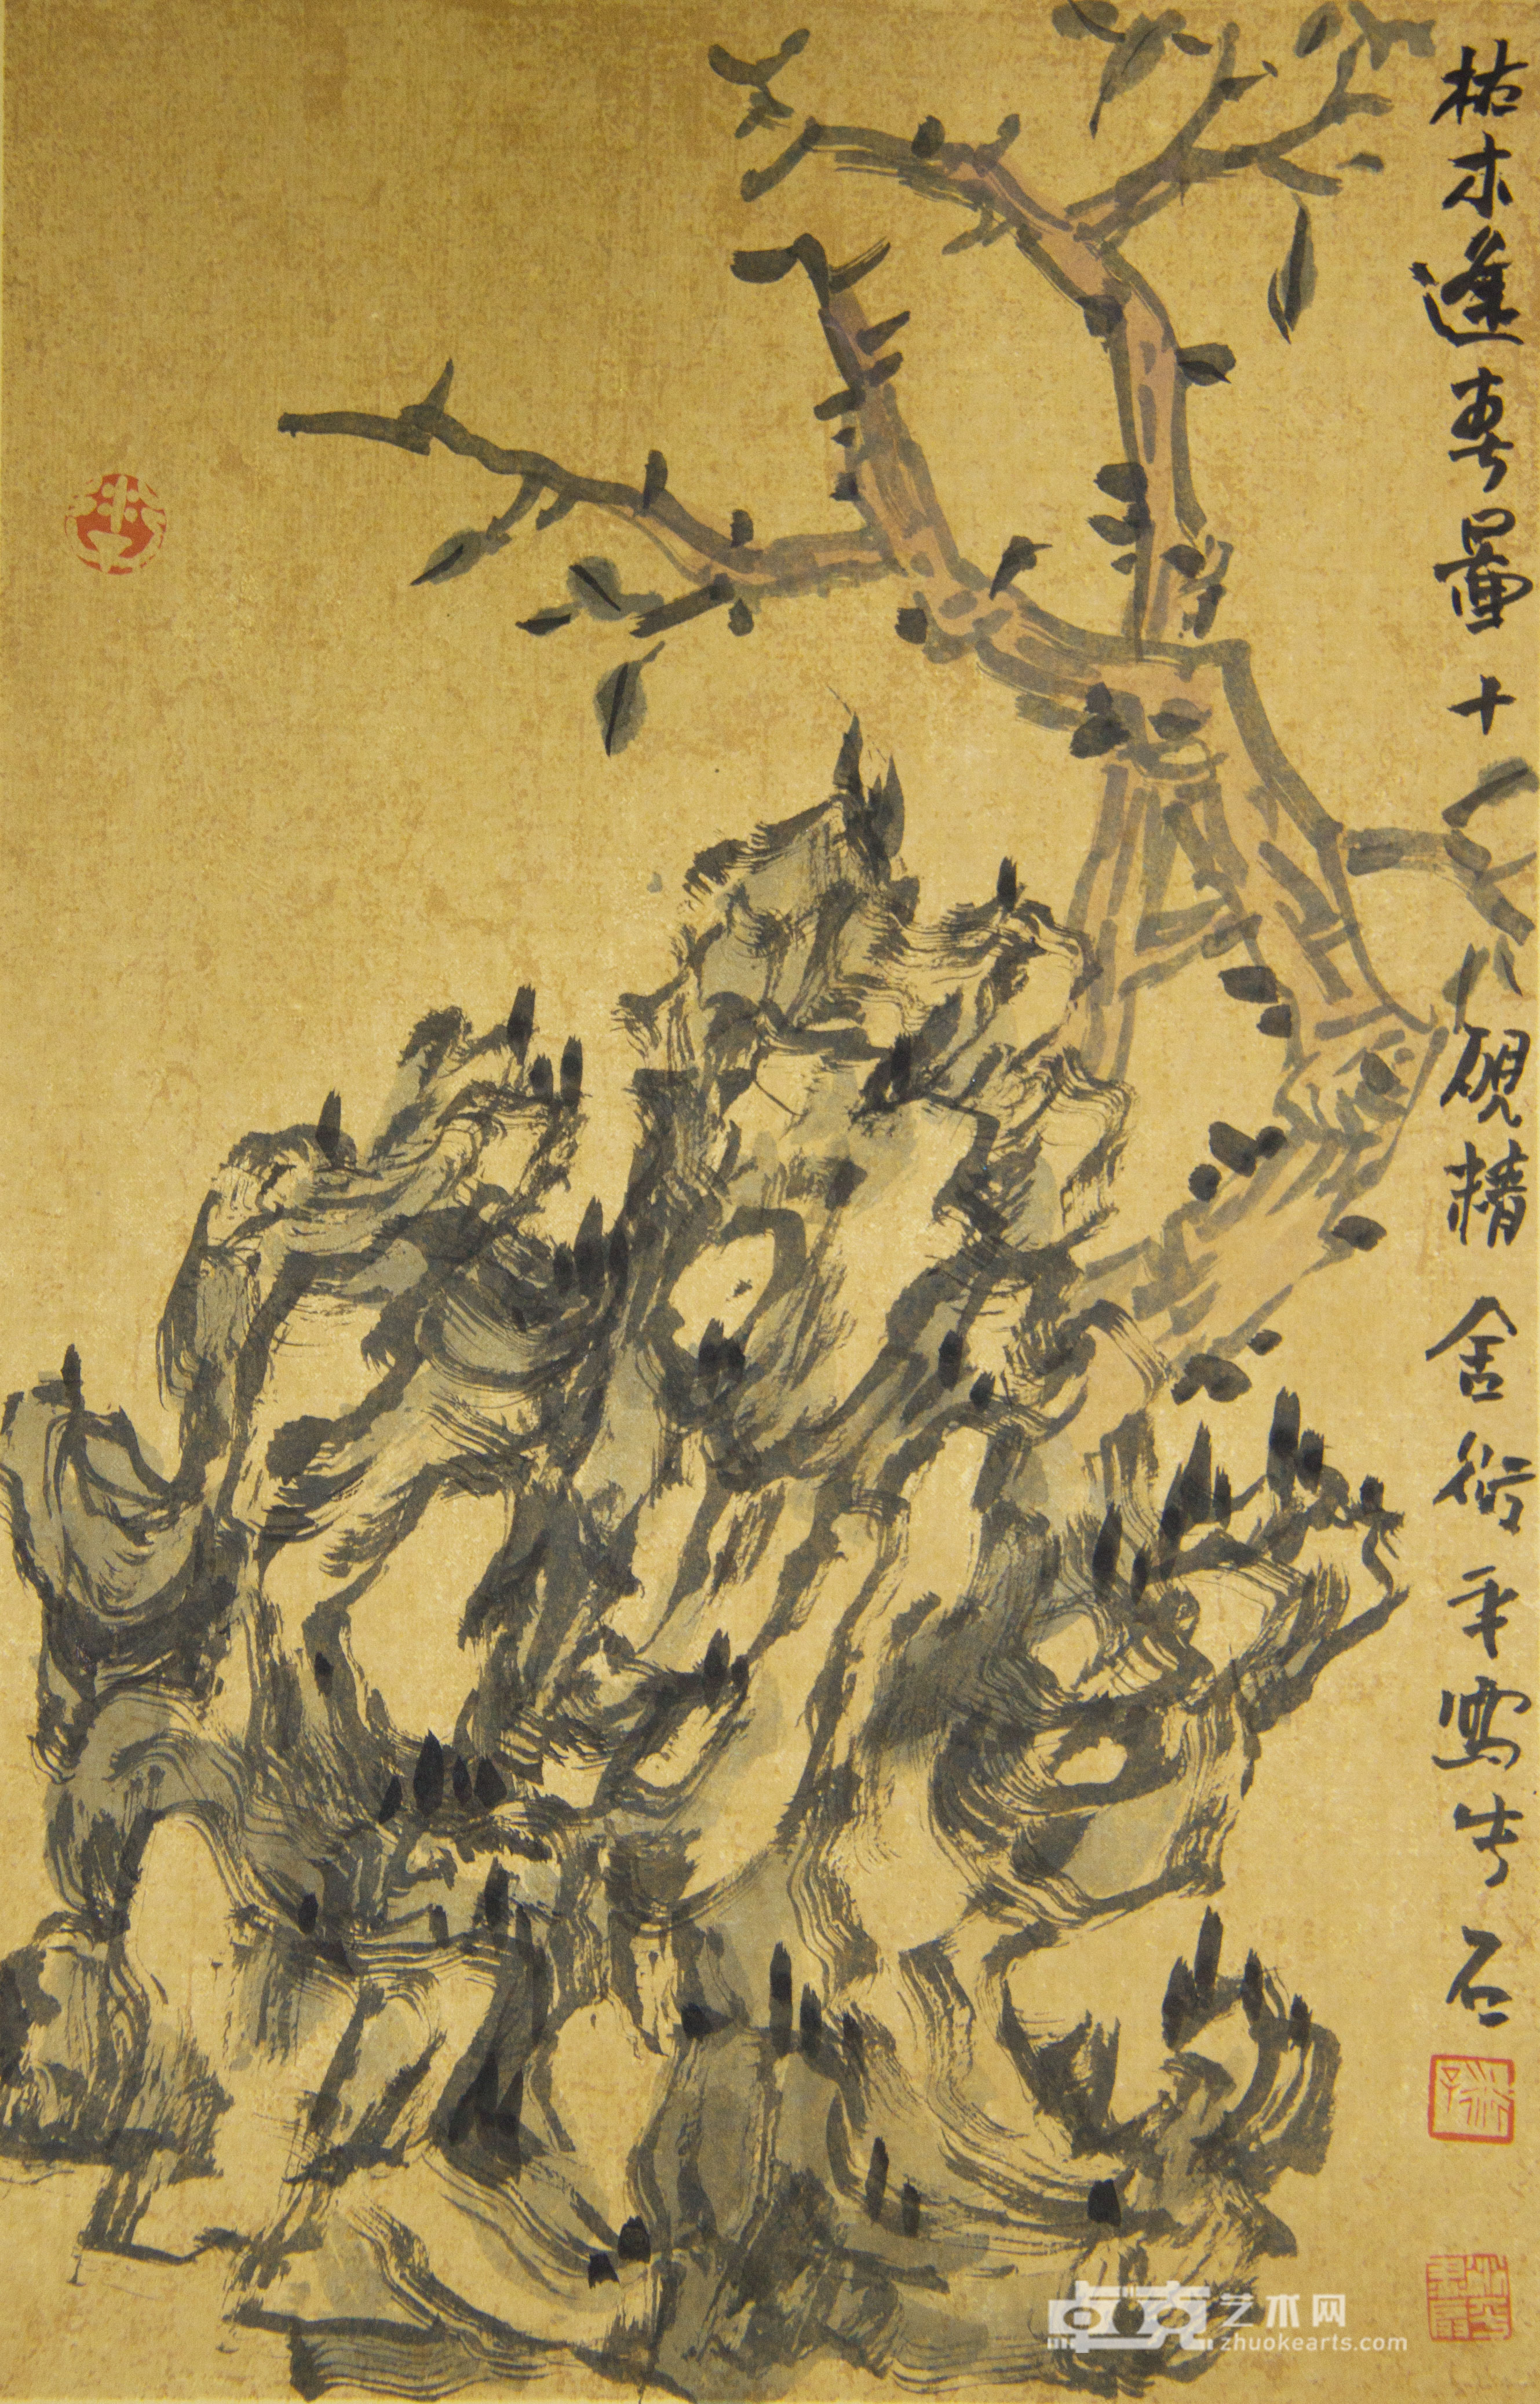 枯木逢春 蜀十八砚精舍衍平写生石
卓克艺术网
zhuokearts.com